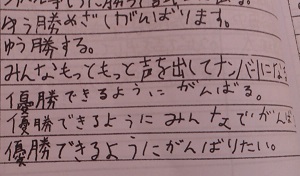 ゆう勝めざしがんばります。
ゆう勝する。
みんなもっともっと声を出してナンバ1にな
優勝できるように がんばる。
優勝できるように みんなでがんば
優勝できるようにがんばりたい。